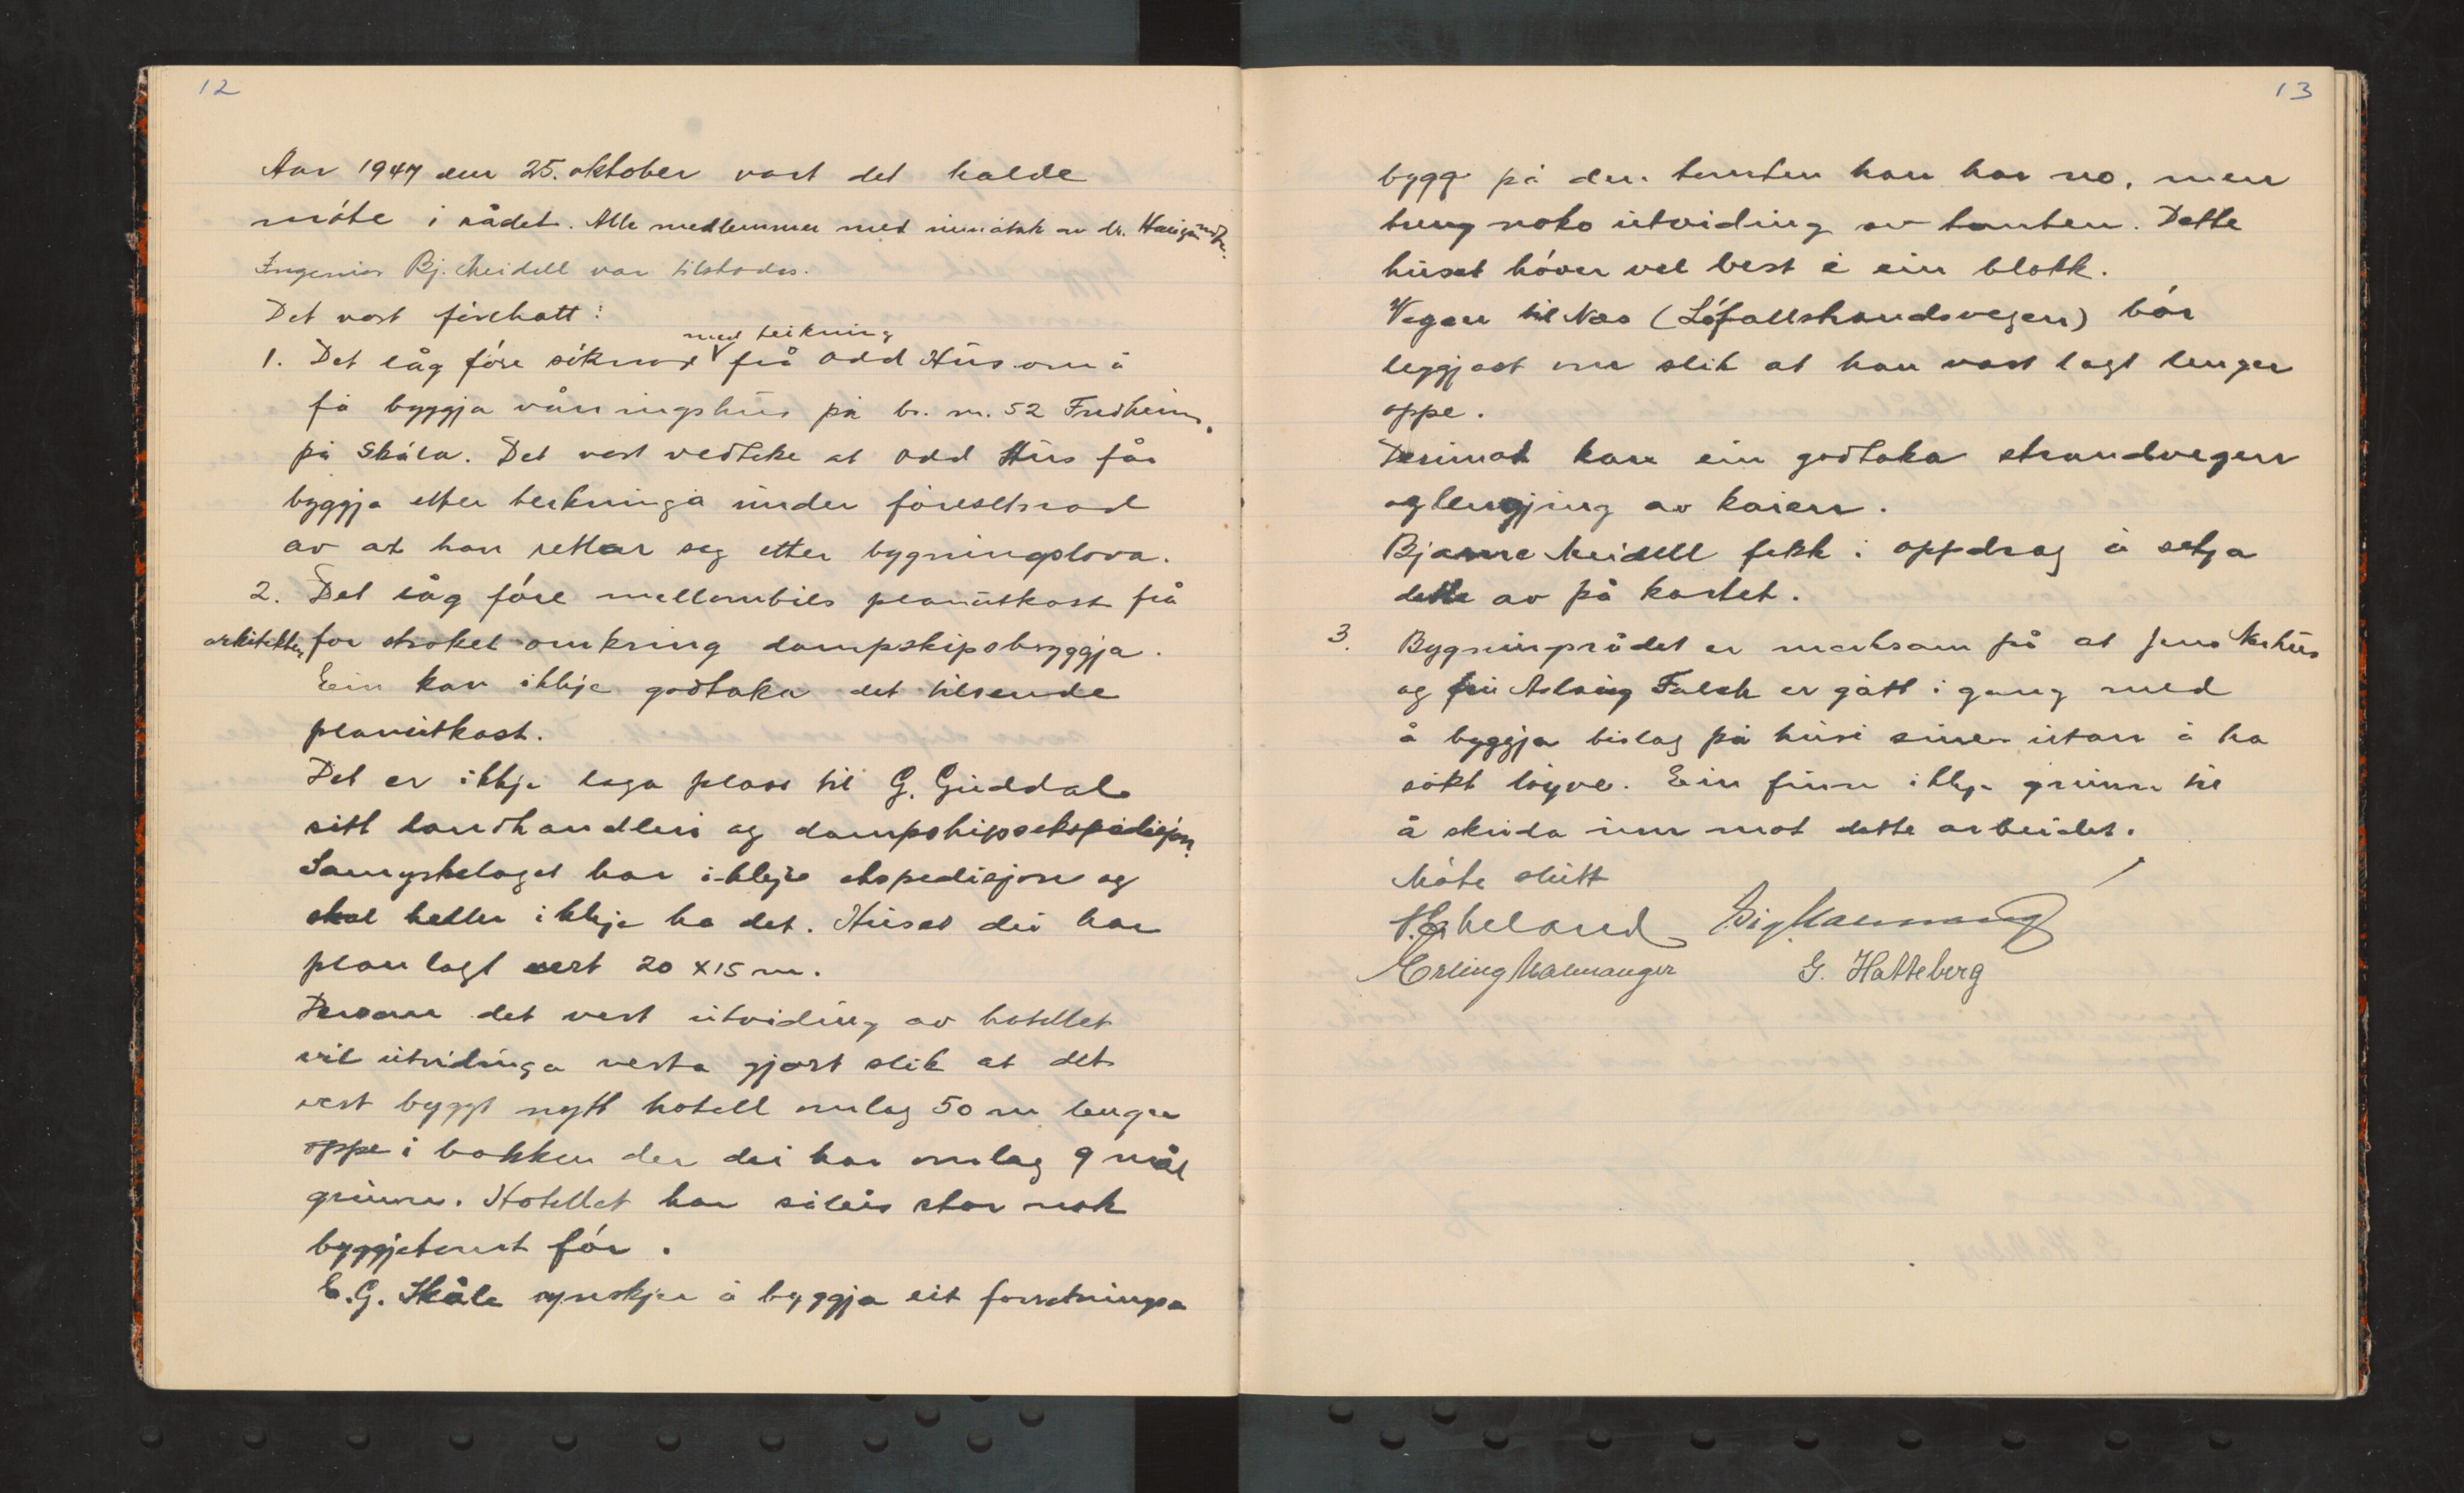 12
Aar 1947 den 25. oktober vart det halde
móte i rådet. Alle medlemmer med unnatak av dr.
Ingeniør Bj. Meidell var tilstades.
Det vart fórehatt:
med teikning
1. Det låg fóre sóknad frå Odd Hus om å
få byggja våningshus på br. nr. 52 Fredheim,
på Skåla. Det vart vedteke at Odd Hus får
byggja etter teikninga under fóresetnad
av at han rettar seg etter bygningslova.
2. Det låg fóre mellombils planutkast frå
arkitekten for stroket omkring dampskipsbryggja.
Ein kan ikkje godtaka det tilsende
planutkast.
Det er ikkje laga plass til G. Guddal
sitt landhandleri og dampskipsekspedisjon.
Samyrkelaget har ikkje ekspedisjon og
skal heller ikkje ha det. Huset dei har
planlagt vert 20 x 15 m.
Dersom det vert utviding av hotellet
vil utvidinga verta gjort slik at det
vert byggt nytt hotell omlag 50 m lenger
oppe i bakken der dei har omlag 9 mål
grunn. Hotellet har såleis stor nok
byggjetomt fór.
E. G. Skåle ynskjer å byggja eit forretnings
13
bygg på den tomten han har no, men
treng noko utviding av tomten. Dette
huset hóver vel best i ein blokk.
Vegen til Nes (Lófallstrandsvegen) bór
leggjast om slik at han vart lagt lenger
oppe.
Derimot kan ein godtaka strandvegen
og lengjing av kaien.
Bjarne Meidell fekk i oppdrag å setja
dette av på kartet.
3. Bygningsrådet er merksam på at Jens Nerhus
og fru Aslaug Falch er gått i gang med
å byggja bislag på husi sine utan å ha
sókt lóyve. Ein finn ikkje grunn til
å skrida inn mot dette arbeidet.
Móte slutt
H. Æbeland Sig. Malmanger
Erling Malmanger G. Hatteberg